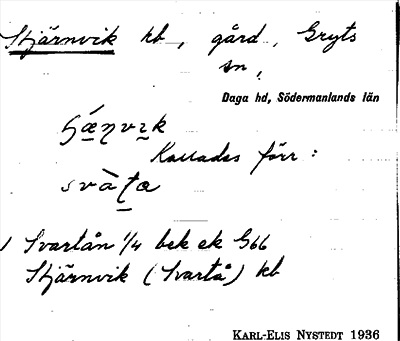 Stjärnvik hb, gård, Gryts
sn,
Daga hd, Södermanlands län
Kallades förr:
1 Svartån 1/4 bek ek G66
Stjärnvik (Svartå) hb
KARL-ELIS NYSTEDT 1936